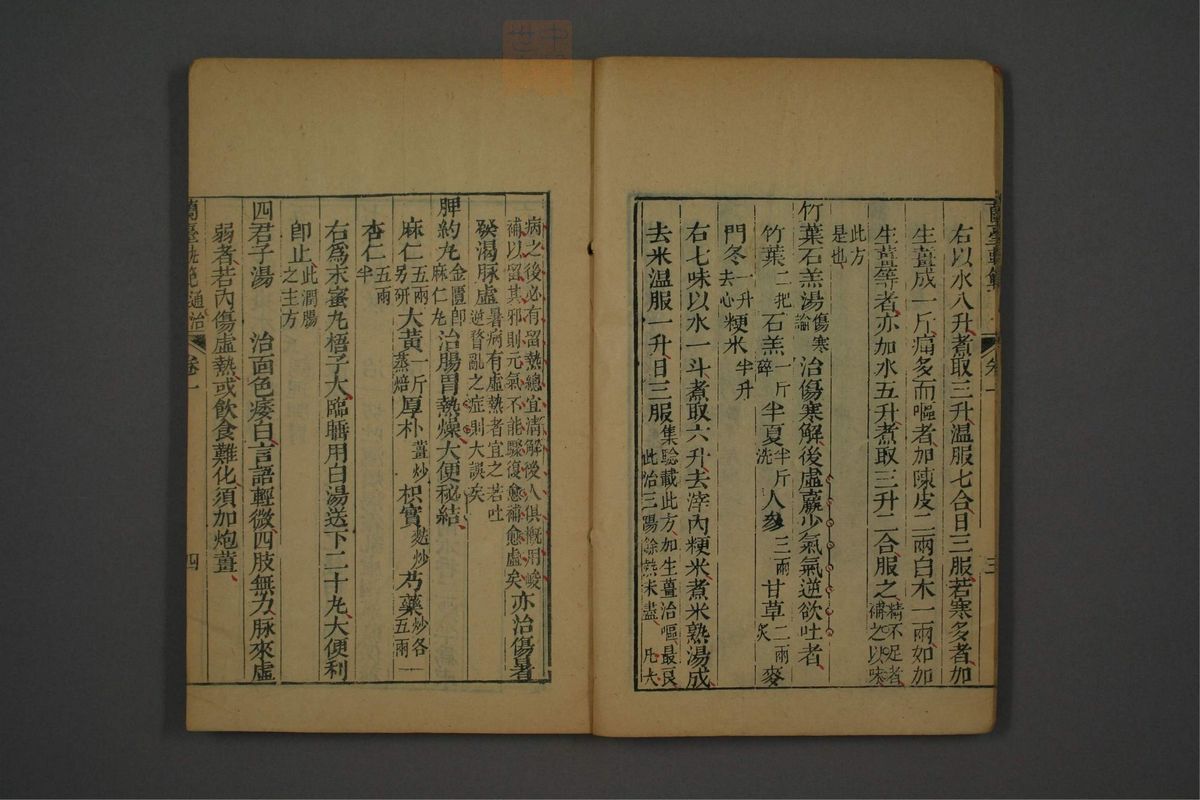 右以水八升煮取三升温服七合日三服若寒多者加
生薑成一斤痛多而嘔者加陳皮二兩白木一兩如加
生薑等者亦加水五升煮取三升二合服之精不足者補之以味
此方是也
竹葉石羔湯傷寒論治傷寒解後虛羸少氣氣逆欲吐者
竹葉二把石羔一斤碎半夏半斤洗人參三兩甘草二兩炙麥
門冬一升去心粳米半升
右七味以水一斗煮取六升去滓內粳米煮米熟湯成
去米温服一升日三服集驗載此方加生薑治嘔最良此治三陽餘熱未盡凡大
卷一
三
病之後必有留熱總宜清解後人俱慨用峻補以留其邪則元氣不能驟復愈補愈虛矣亦治傷暑者
發渴脉虛暑病有虛熱者宜之若吐逆瞀亂之症則大誤矣
脾約丸金匱卽麻仁丸治腸胃熱燥大便秘結
麻仁五兩另研大黃一斤蒸焙厚朴薑炒枳實麩炒芍藥炒各五兩一
杏仁五兩半
右爲末蜜丸梧子大臨臥用白湯送下二十丸大便利
卽止此潤腸之主方
四君子湯　治面色痿白言語輕微四肢無力脉來虛
弱者若內傷虛熱或飲食難化須加炮薑
蘭臺軌範通治
卷一
四